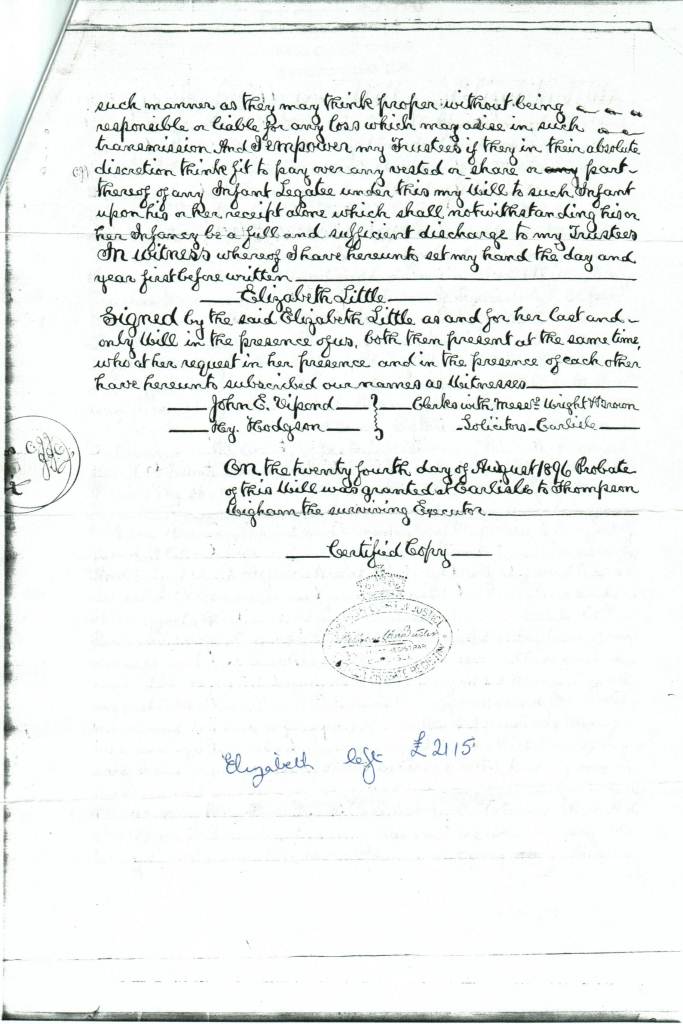 such manner as they may think proper without being
responsible or liable for any loss which may arise in such
transmission And I empower my Trustees if they in their absolute
discretion think fit to pay over any vested or share or any part
thereof of any Infant Legatee under this my Will to such Infant
upon his or her receipt alone which shall notwithstanding his or
her Infancy be a full and sufficient discharge to my Trustees
In witness whereof I have hereunto set my hand the day and
year first before written
Elizabeth Little
Signed by the said Elizabeth Little as and for her last and
only Will in the presence of us, both then present at the same time,
who at her request in her presence and in the presence of each other
have hereunto subscribed our names as Witnesses
John E. Vipond } Clerks with Messrs Wright & Brown
Hy. Hodgson } Solicitors Carlisle
On the twenty fourth day of August 1896 Probate
of this Will was granted at Carlisle to Thompson
Wigham the surviving Executor
Certified Copy
JUSTICE
REGISTRAR
Elizabeth left £2115